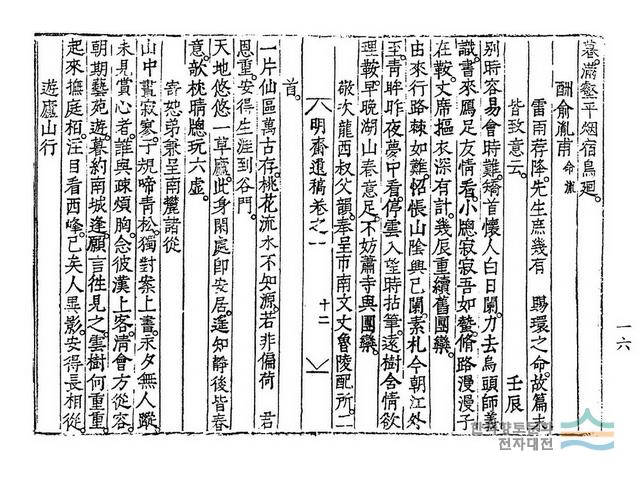 暮滿壑平烟宿鳥廻
酬俞胤甫 命胤
雷雨荐降先生庶幾有 賜環之命故篇末
皆致意云 壬辰
別時容易會時難矯首懷人白日闌力去烏頭師
識書來鴈足友情看小牕寂寂吾如蟄脩路漫漫子
在鞍丈席摳衣深有計幾辰重續舊團欒
由來行路棘如難怊悵山陰興已闌素札今朝江外
至靑眸昨夜夢中看停雲入望時拈筆遠樹含情欲
理鞍早晩湖山春意足不妨蕭寺與團欒
敬次龍西叔父韻奉呈市南文丈魯陵配所二
明齋遺稿卷之一 十二
首
一片仙區萬古存桃花流水不知源若非偏荷 君
恩重安得生涯到谷門
天地悠悠一草廬此身閑處卽安居遙知靜後皆春
意欹枕晴牕玩六虛
寄恕弟兼呈南麓諸從
山中襲寂寥子規啼靑松獨對案上書永夕無人蹤
未見賞心者誰與疎煩胸念彼漢上客淸會方從容
朝期藝苑遊暮約南城逢願言徃見之雲樹何重重
起來撫庭柏注目看西峰已矣人異影安得長相從
遊廬山行
一六
향토문화
전자대전